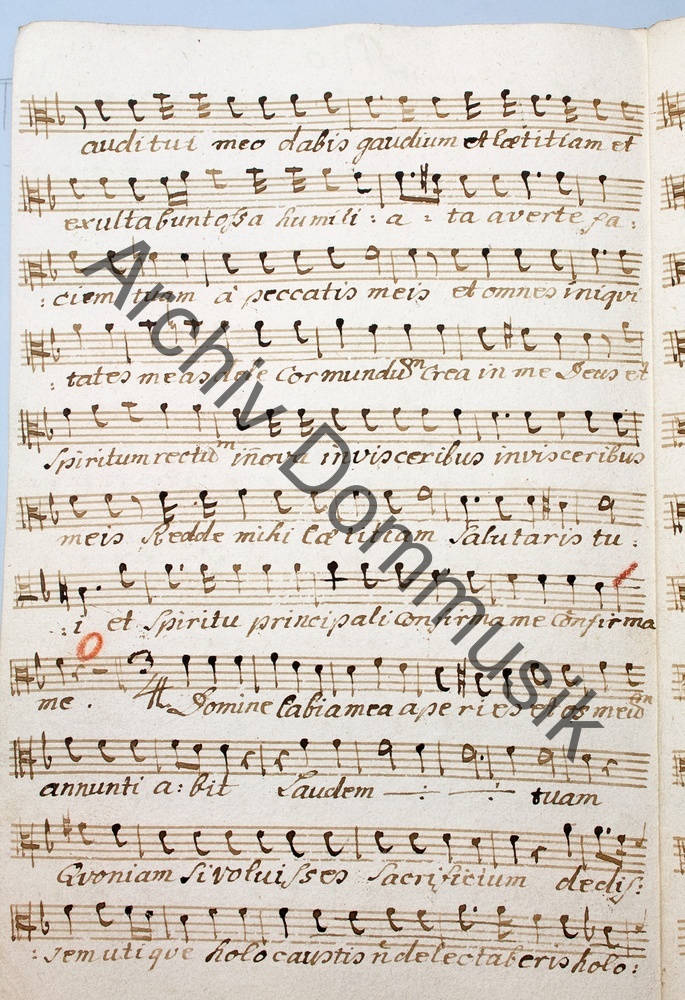 auditui meo dabis gaudium et lætitiam et
exultabunt ossa humili : a : ta averte fa :
: ciem tuam à peccatis meis et omnes iniqui
: tates meas dele Cor mundūm Crea in me Deus et
Spiritum rectūm iñova in visceribus in visceribus
meis Redde mihi Lætitiam Salutaris tu :
: i et Spiritu principali Confirma me Confirma
me . 3/4 Domine labia mea aperies et os meūm
annunti a : bit Laudem — : — : — tuam
Quoniam Si voluisses Sacrificium dedis :
: sem utique holocaustis ñ delectaberis holo :
Archiv Dommusik